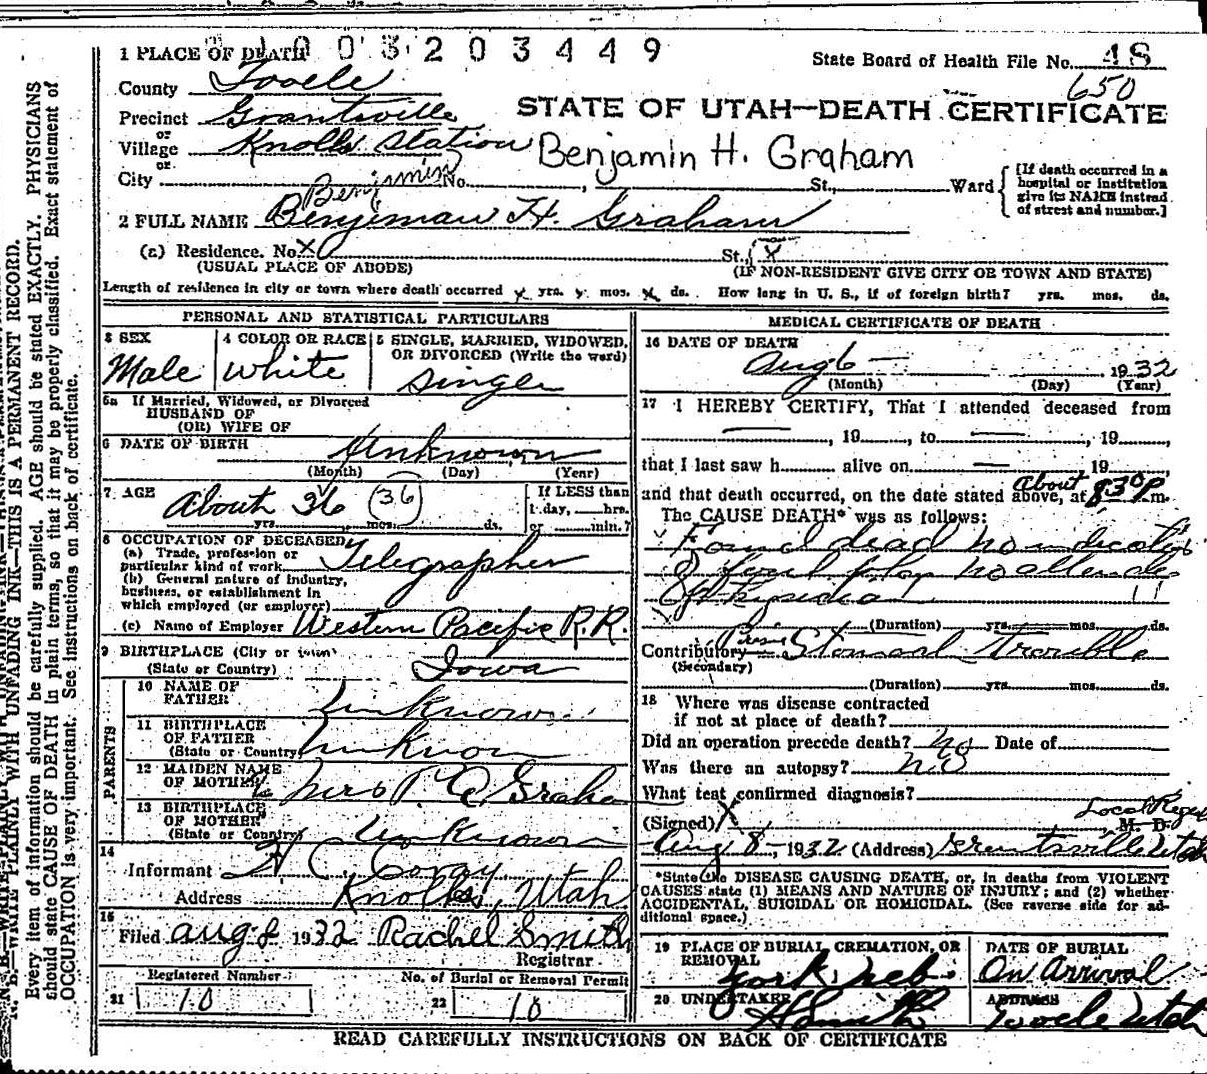 1 PLACE OF DEATH 1003203449
State Board of Health File No. 48
650
County Tooele
Precinct Grantsville
STATE OF UTAH—DEATH CERTIFICATE
or
Village Knolls Station
Benjamin H. Graham
or
City No. , St., Ward
[If death occurred in a
hospital or institution
give its NAME instead
of street and number.]
Benjamin
2 FULL NAME Benjiman H. Graham
(a) Residence. No. X St., X
(USUAL PLACE OF ABODE) (IF NON-RESIDENT GIVE CITY OR TOWN AND STATE)
Length of residence in city or town where death occurred x yrs. x mos. x ds. How long in U. S., if of foreign birth? yrs. mos. ds.
PERSONAL AND STATISTICAL PARTICULARS
3 SEX
Male
4 COLOR OR RACE
White
5 SINGLE, MARRIED, WIDOWED,
OR DIVORCED (Write the word)
Single
5a If Married, Widowed, or Divorced
HUSBAND OF
(OR) WIFE OF
6 DATE OF BIRTH Unknown
(Month) (Day) (Year)
7 AGE About 36 (36)
yrs. mos. ds.
If LESS than
1 day, hrs.
or min.?
8 OCCUPATION OF DECEASED
(a) Trade, profession or
particular kind of work Telegrapher
(b) General nature of industry,
business, or establishment in
which employed (or employer)
(c) Name of Employer Western Pacific R.R.
9 BIRTHPLACE (City or town)
(State or Country) Iowa
PARENTS
10 NAME OF
FATHER Unknown
11 BIRTHPLACE
OF FATHER
(State or Country) Unknown
12 MAIDEN NAME
OF MOTHER Mrs Graha
13 BIRTHPLACE
OF MOTHER
(State or Country) Unknown
14
Informant H C
Address Knolls, Utah
15
Filed Aug 8 1932 Rachel Smith
Registrar
Registered Number
21 10
No. of Burial or Removal Permit
22 10
MEDICAL CERTIFICATE OF DEATH
16 DATE OF DEATH
Aug 6 — 1932
(Month) (Day) (Year)
17 I HEREBY CERTIFY, That I attended deceased from
—, 19, to —, 19,
that I last saw h alive on — 19,
About
and that death occurred, on the date stated above, at 8 30 P.m.
The CAUSE DEATH* was as follows:
Found dead no indication
of foul play no
(Duration) yrs. mos. ds.
Contributory Stomach trouble
(Secondary)
(Duration) yrs. mos. ds.
18 Where was disease contracted
if not at place of death?
Did an operation precede death? No Date of
Was there an autopsy? No
What test confirmed diagnosis?
Local Regis
(Signed) X M. D.
Aug 8 -, 1932 (Address) Grantsville Utah
*State the DISEASE CAUSING DEATH, or, in deaths from VIOLENT
CAUSES state (1) MEANS AND NATURE OF INJURY; and (2) whether
ACCIDENTAL, SUICIDAL OR HOMICIDAL. (See reverse side for ad-
ditional space.)
19 PLACE OF BURIAL, CREMATION, OR
REMOVAL
York Neb.
DATE OF BURIAL
On Arrival
20 UNDERTAKER
A Smith
ADDRESS
Tooele Utah
READ CAREFULLY INSTRUCTIONS ON BACK OF CERTIFICATE
N. B.—WRITE PLAINLY WITH UNFADING INK—THIS IS A PERMANENT RECORD.
Every item of information should be carefully supplied. AGE should be stated EXACTLY. PHYSICIANS
should state CAUSE OF DEATH in plain terms, so that it may be properly classified. Exact statement of
OCCUPATION is very important. See instructions on back of certificate.